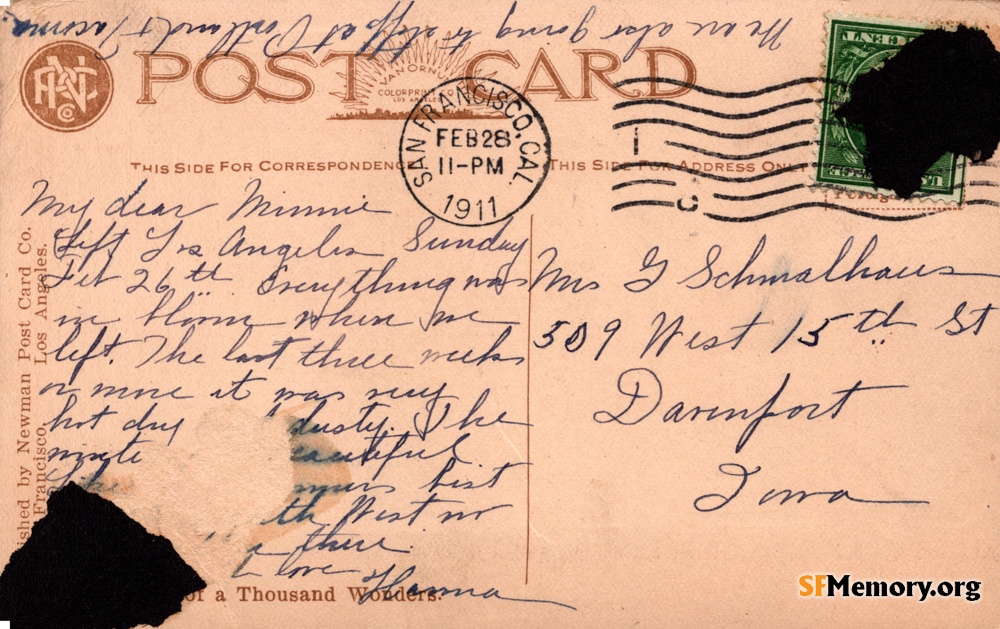 We are also going to stop at Portland & Tacoma.
POST CARD
VAN ORNUM
COLORPRINT CO
LOS ANGELES
SAN FRANCISCO, CAL.
FEB 28
11-PM
1911
THIS SIDE FOR CORRESPONDENCE
THIS SIDE FOR ADDRESS ONLY
CENT
My dear Minnie
Left Los Angeles Sunday
Feb 26th Everything was
in bloom when we
left. The last three weeks
or more it was very
hot dry dusty. The
beautiful
best
th West
there.
love Hanna
Mrs G Schmalhaus
509 West 15th St
Davenport
Iowa
ished by Newman Post Card Co.
Francisco. Los Angeles.
of a Thousand Wonders.
SFMemory.org